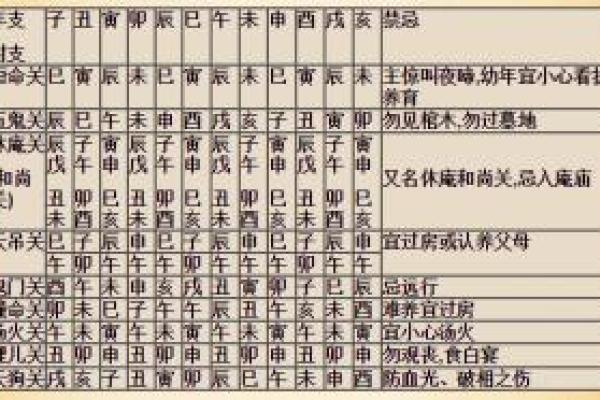 支 子 丑 寅 卯 辰 巳 午 未 申 酉 戌 亥 禁忌
支
命关 巳 寅 辰 未 巳 寅 辰 未 巳 寅 辰 未 主惊叫夜啼,幼年宜小心看
养育
鬼关 辰 巳 午 未 申 酉 戌 亥 子 丑 寅 卯 勿见棺木,勿过墓地
庵关 辰 子 寅 辰 子 寅 辰 子 寅 辰 子 寅
戊 午 申 戊 午 申 戊 午 申 戊 午 申
和尚 又名休庵和尚关,忌入庵庙
丑 卯 巳 丑 卯 巳 丑 卯 巳 丑 卯 巳
未 酉 亥 未 酉 亥 未 酉 亥 未 酉 亥
吊关 巳 子 辰 申 巳 子 辰 申 巳 子 辰 申 宜过房或认养父母
门关 酉 午 未 申 亥 戌 丑 寅 卯 子 巳 辰 忌远行
命关 卯 未 巳 子 午 午 难养宜过房
火关 午 未 寅 午 未 寅 午 未 寅 午 未 寅 宜小心汤火
儿关 丑 卯 申 丑 卯 申 丑 卯 申 丑 卯 申 勿观丧,食白宴
狗关 戌 亥 子 丑 寅 卯 辰 巳 午 未 申 酉 防血光、破相之伤